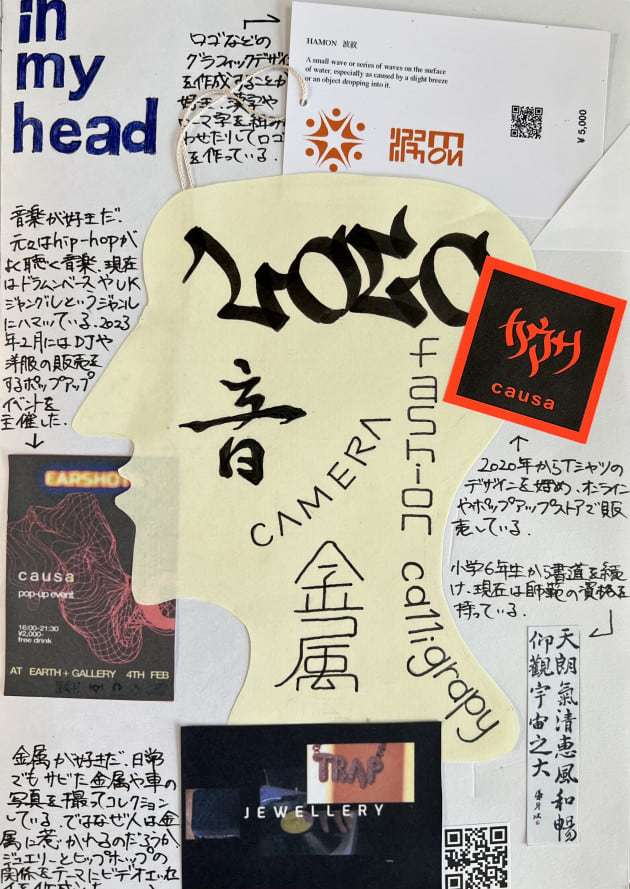 in
my
head
ロゴなどの
グラフィックデザイン
を作成することが
好き、漢字や
わせたりしてロゴ
を作っている.
HAMON 波紋
A small wave or series of waves on the surface
of water, especially as caused by a slight breeze
or an object dropping into it.
¥ 5,000
音楽が好きだ.
元々はhip-hopが
よく聴く音楽、現在
はドラムンベースやUK
ジャングルというジャンル
にハマっている. 2023
年2月にはDJや
洋服の販売を
するポップアップ
イベントを
主催した.
LOGO
音
CAMERA
fashion
calligrapy
金属
causa
EARSHOT
causa
pop-up event
16:00-21:30
¥2,000-
free drink
AT EARTH+GALLERY 4TH FEB
2020年からTシャツの
デザインを始め、オンライン
やポップアップストアで販
売している.
小学6年生から書道を続
け、現在は師範の資格を
持っている.
天朗氣清惠風和暢
仰觀宇宙之大
金属が好きだ. 日常
でもサビた金属や車の
写真を撮ってコレクション
している. ではなぜ人は金
属に惹かれるのだろうか
ジュエリーとヒップホップの
関係をテーマにビデオエッセ
TRAP
JEWELLERY